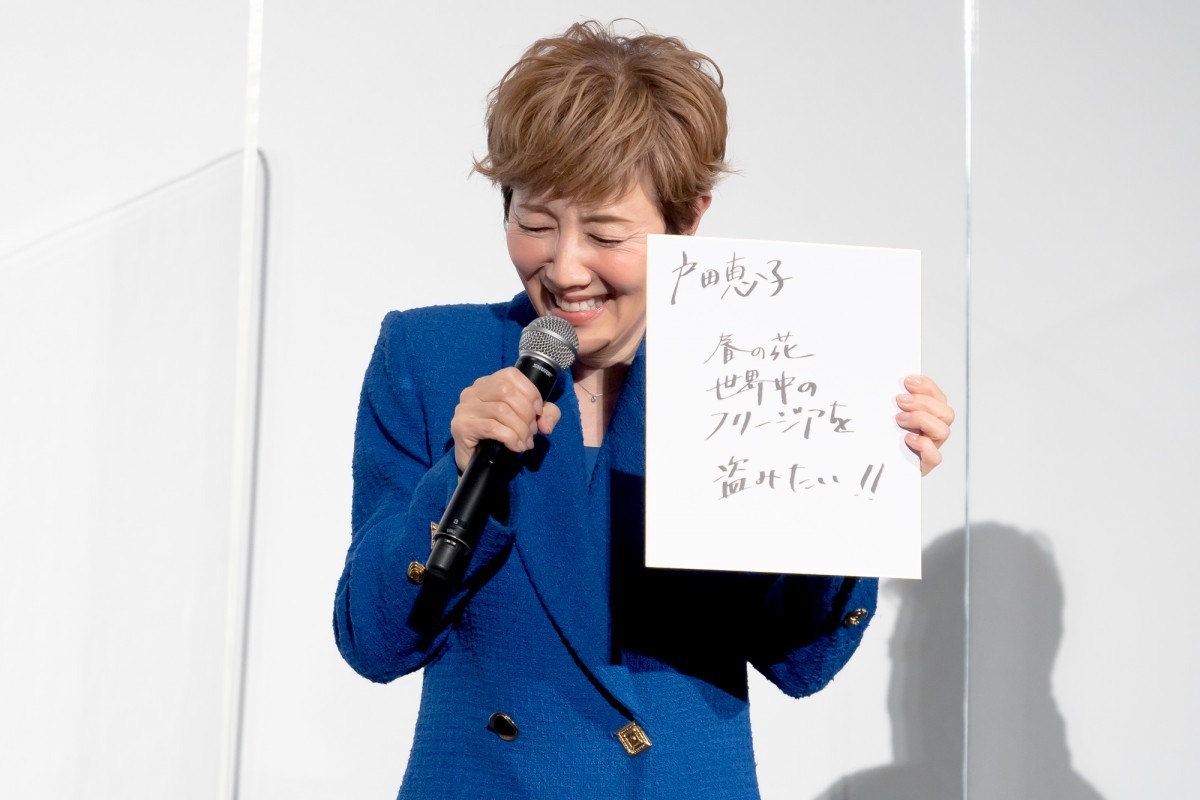 戸田恵子
春の花
世界中の
フリージアを
盗みたい!!